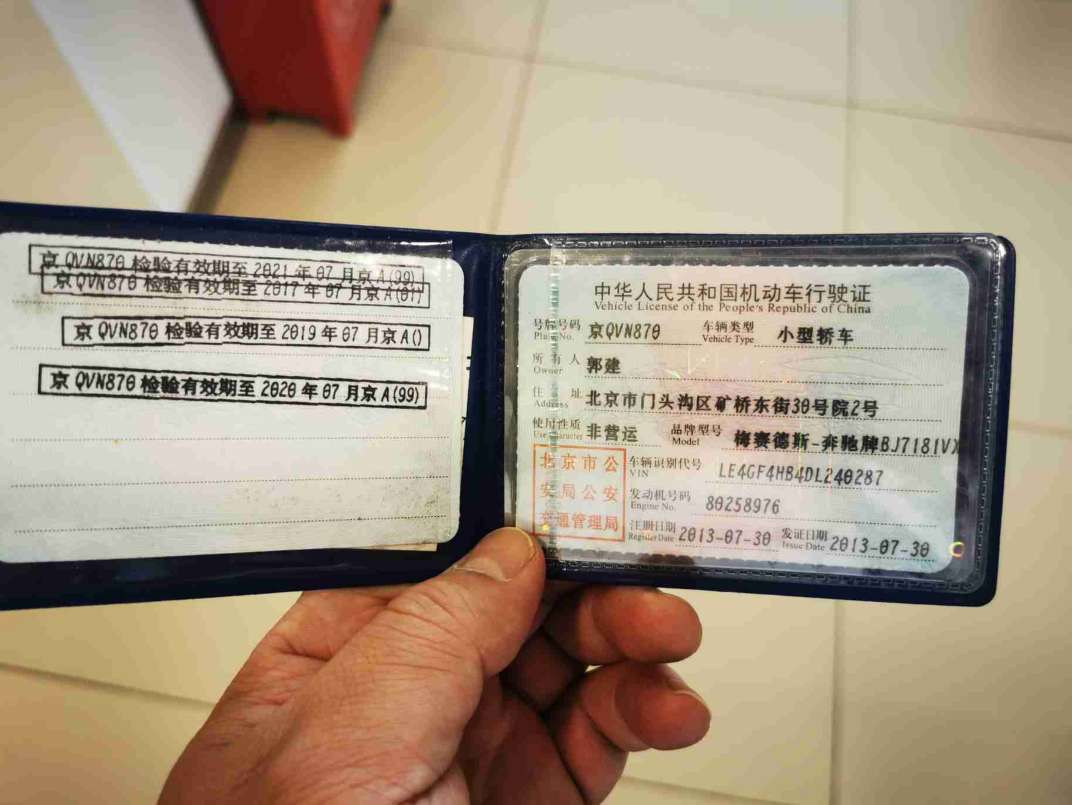 京 QVN870 检验有效期至 2021 年 07 月京 A(99)
京 QVN870 检验有效期至 2017 年 07 月京 A(01)
京 QVN870 检验有效期至 2019 年 07 月京 A()
京 QVN870 检验有效期至 2020 年 07 月京 A(99)
中华人民共和国机动车行驶证
Vehicle License of the People's Republic of China
号牌号码 京QVN870 车辆类型 小型轿车
Plate No. Vehicle Type
所有人 郭建
Owner
住址 北京市门头沟区矿桥东街30号院2号
Address
使用性质 非营运 品牌型号 梅赛德斯-奔驰牌BJ7181VX
Use Character Model
北京市公
安局公安
交通管理局
车辆识别代号 LE4GF4HB4DL240287
VIN
发动机号码 80258976
Engine No.
注册日期 2013-07-30 发证日期 2013-07-30
Register Date Issue Date